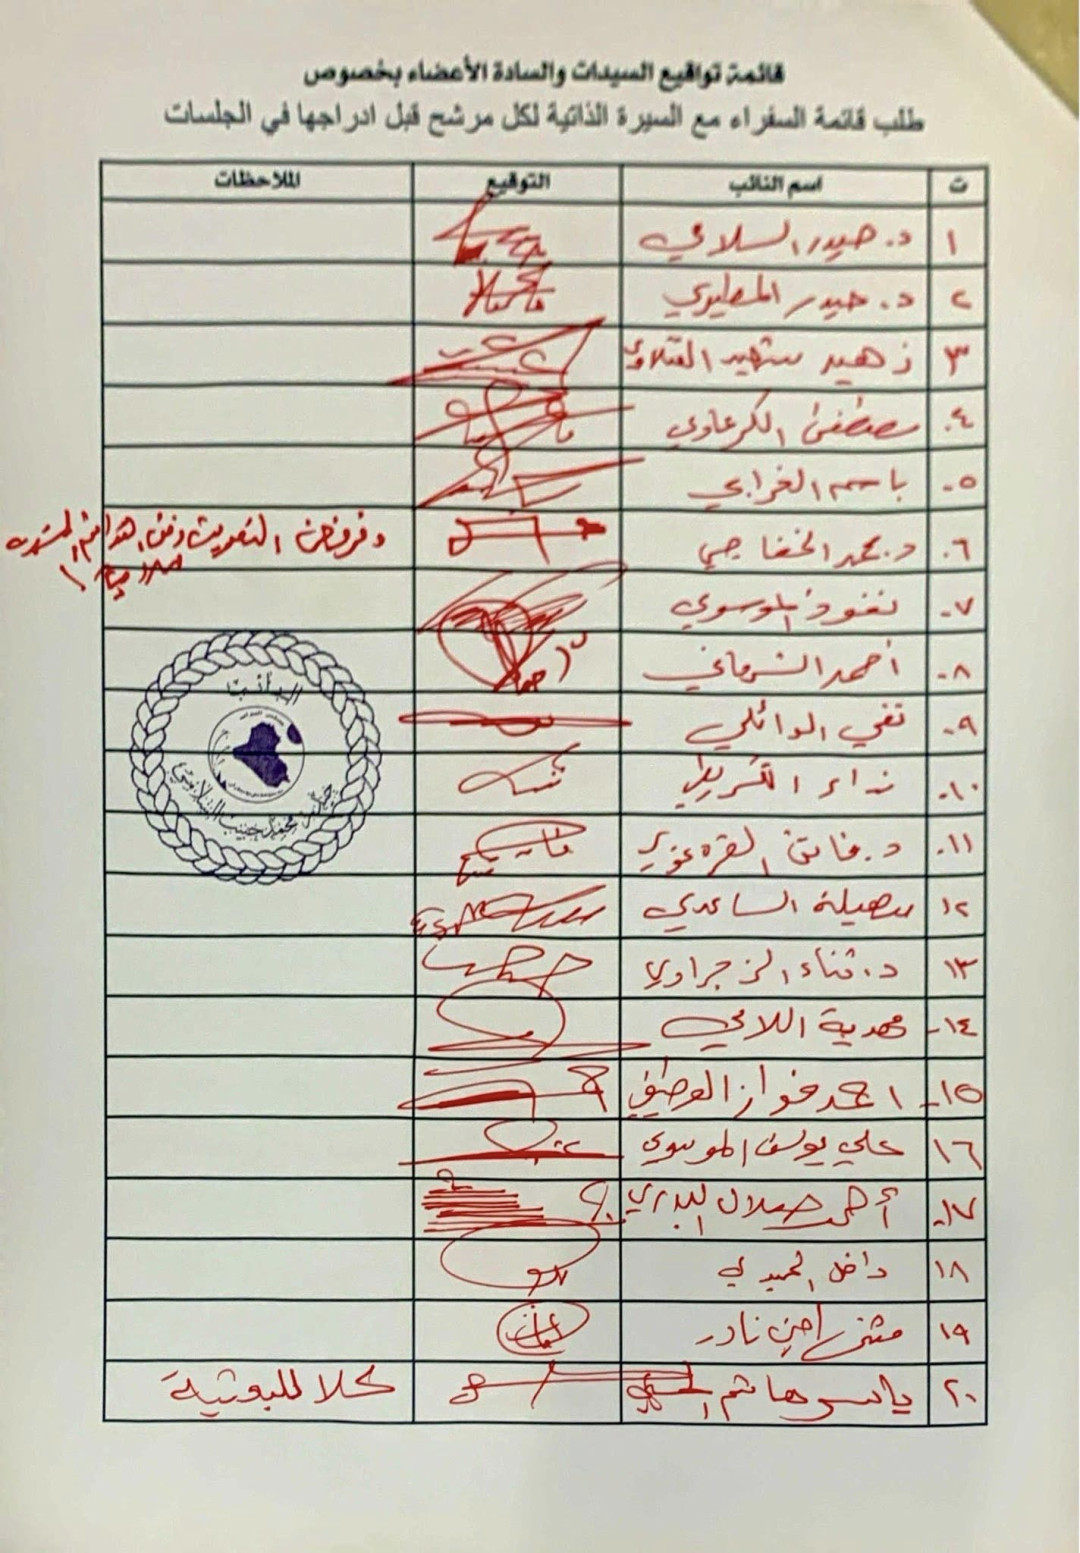 قائمة تواقيع السيدات والسادة الأعضاء بخصوص
طلب قائمة السفراء مع السيرة الذاتية لكل مرشح قبل ادراجها في الجلسات
ت اسم النائب التوقيع الملاحظات
١ د. حيدر السلامي
٢ د. حيدر المطيري
٣ زهير شهيد الفتلاوي
٤. مصطفى الكرعاوي
٥. باسم الغرابي
٦. د. محمد الخفاجي ونرفض التصويت
٧. نفوذ الموسوي
٨. أحمد الشرماني
٩. تقي الوائلي
١٠. نداء الكريطي
١١. د. فاتن القره غولي
١٢ سهيلة الساعدي
١٣ د. ثناء الزجراوي
١٤- مهدية اللامي
١٥- احمد فواز الوطيفي
١٦ علي يوسف الموسوي
١٧. أحمد صلال البدري
١٨ داخل الحميدي
١٩ مثنى امين نادر
٢٠. ياسر هاشم كلا للبعثية
النائب